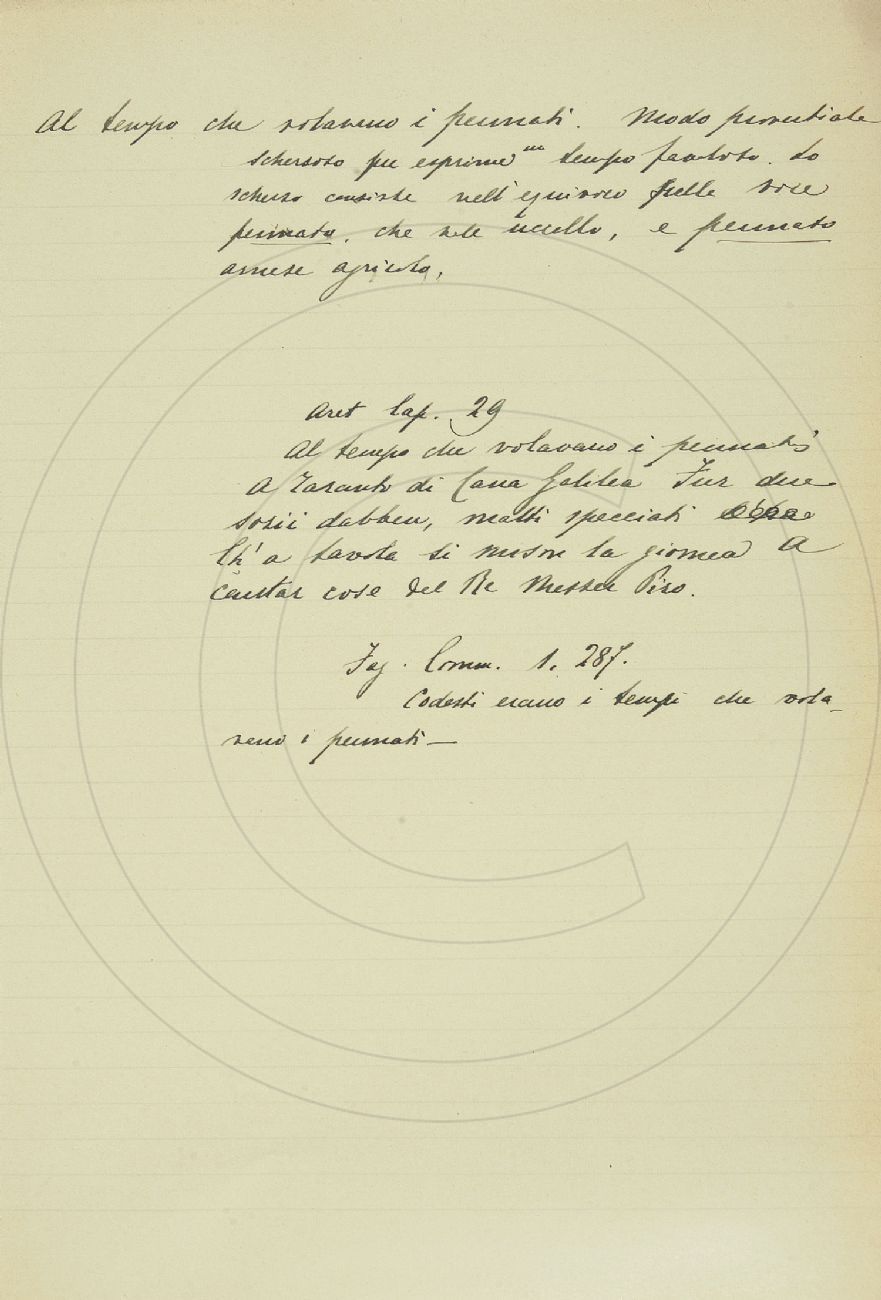 Al tempo che volavano i pennati. Modo proverbiale
scherzoso per esprime un tempo favoloso. Lo
scherzo consiste nell'equivoco della voce
pennato, che vale uccello, e pennato
arnese agricolo.
Aret Cap. 29
Al tempo che volavano i pennati
A Taranto di Cana Galilea Fur due
sozii dabben, matti specciati
Ch'a tavola si misson la giornea A
cantar cose del Re Messer Piro.
Fag. Comm. 1. 287.
Codesti erano i tempi che vola-
vano i pennati —